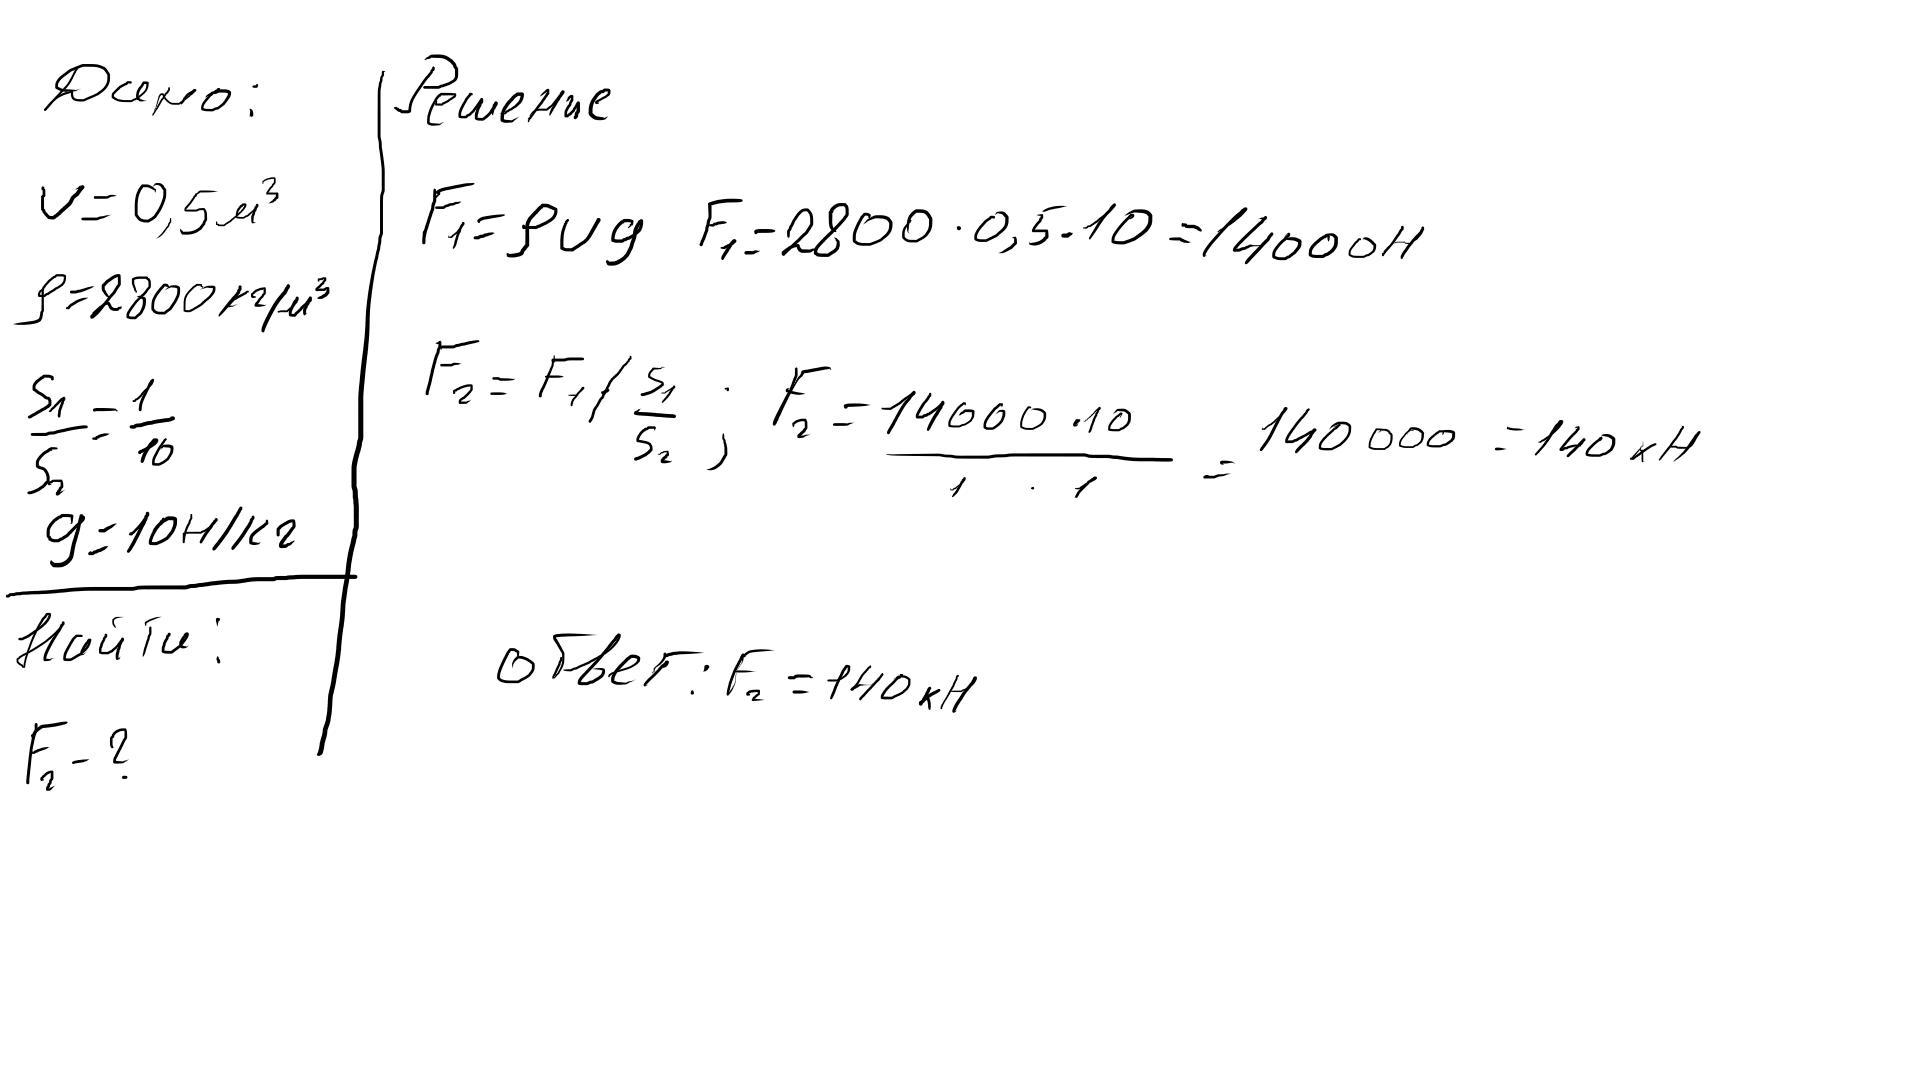 Дано:
V = 0,5 м³
ρ = 2800 кг/м³
S₁/S₂ = 1/10
g = 10 Н/кг
Найти:
F₂ - ?
Решение
F₁ = ρVg F₁ = 2800 · 0,5 · 10 = 14000 Н
F₂ = F₁ / S₁/S₂ ; F₂ = 14000 · 10 / 1 · 1 = 140 000 = 140 кН
Ответ: F₂ = 140 кН